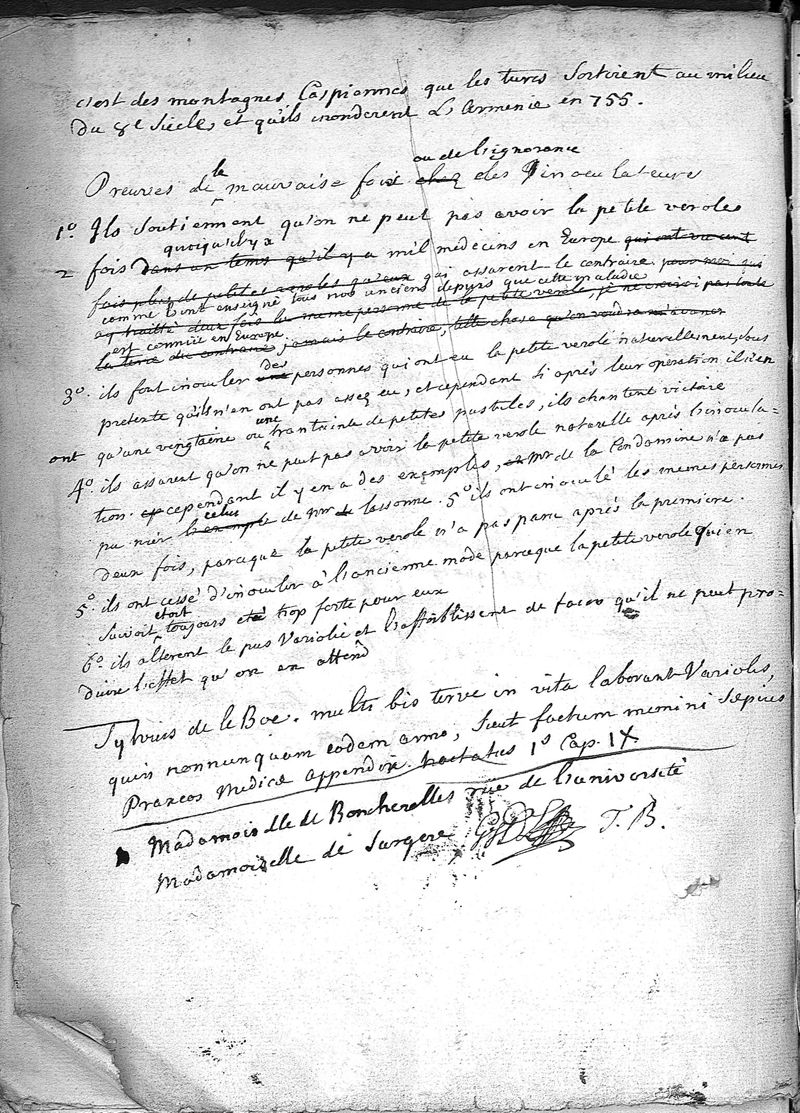 c'est des montagnes Caspiennes que les turcs sortirent au milieu
du 8e siecle, et qu'ils inonderent L'Armenie en 755.
ou de l'ignorance
Preuves de la mauvaise foi chez des Inoculateurs
1º. Ils soutiennent qu'on ne peut pas avoir la petite verole
quoiqu'il y a
2 fois dans un tems qu'il y a mil medecins en Europe qui ont vu cent
fois plus de petites veroles qu'eux qui assurent le contraire pour moi qui
comme l'ont enseigné tous nos anciens depuis que cette maladie
ay traitté deux fois la meme personne de la petite verole, je ne croirai pas toute
est connue en Europe
la terre du contraire, jamais le contraire, telle chose qu'on voudra m'avancer
3º. ils font inoculer une des personnes qui ont eu la petite verole naturellement, sous
pretexte qu'ils n'en ont pas assez eu, et cependant si après leur operation il s'en
ont qu'une vingtaine ou une trantaine de petites pustules, ils chantent victoire
4º. ils assurent qu'on ne peut pas avoir la petite verole naturelle après l'inocula=
tion. et cependant il y en a des exemples, et mr de la Condamine n'a pas
pu nier l'exemple celui de mr de lassonne. 5º ils ont inoculé les memes personnes
deux fois, parceque la petite verole n'a pas paru après la premiere.
5º. ils ont cessé d'inoculer à l'ancienne mode parceque la petite verole qui en
suivoit etoit toujours eté trop forte pour eux
6º. ils alterent le pus Variolié et l'affoiblissent de facon qu'il ne peut pro=
duire l'effet qu'on en attend
Sylvius de le Boe. multi bis terve in vita laborant Variolis,
quin nonnunquam eodem anno, sicut factum memini sepius
Praxeos Medicæ appendix. tractatus 1s Cap. IX.
Mademoiselle de Boncherelles rüe de l'université
Mademoiselle de Surgere T. B.